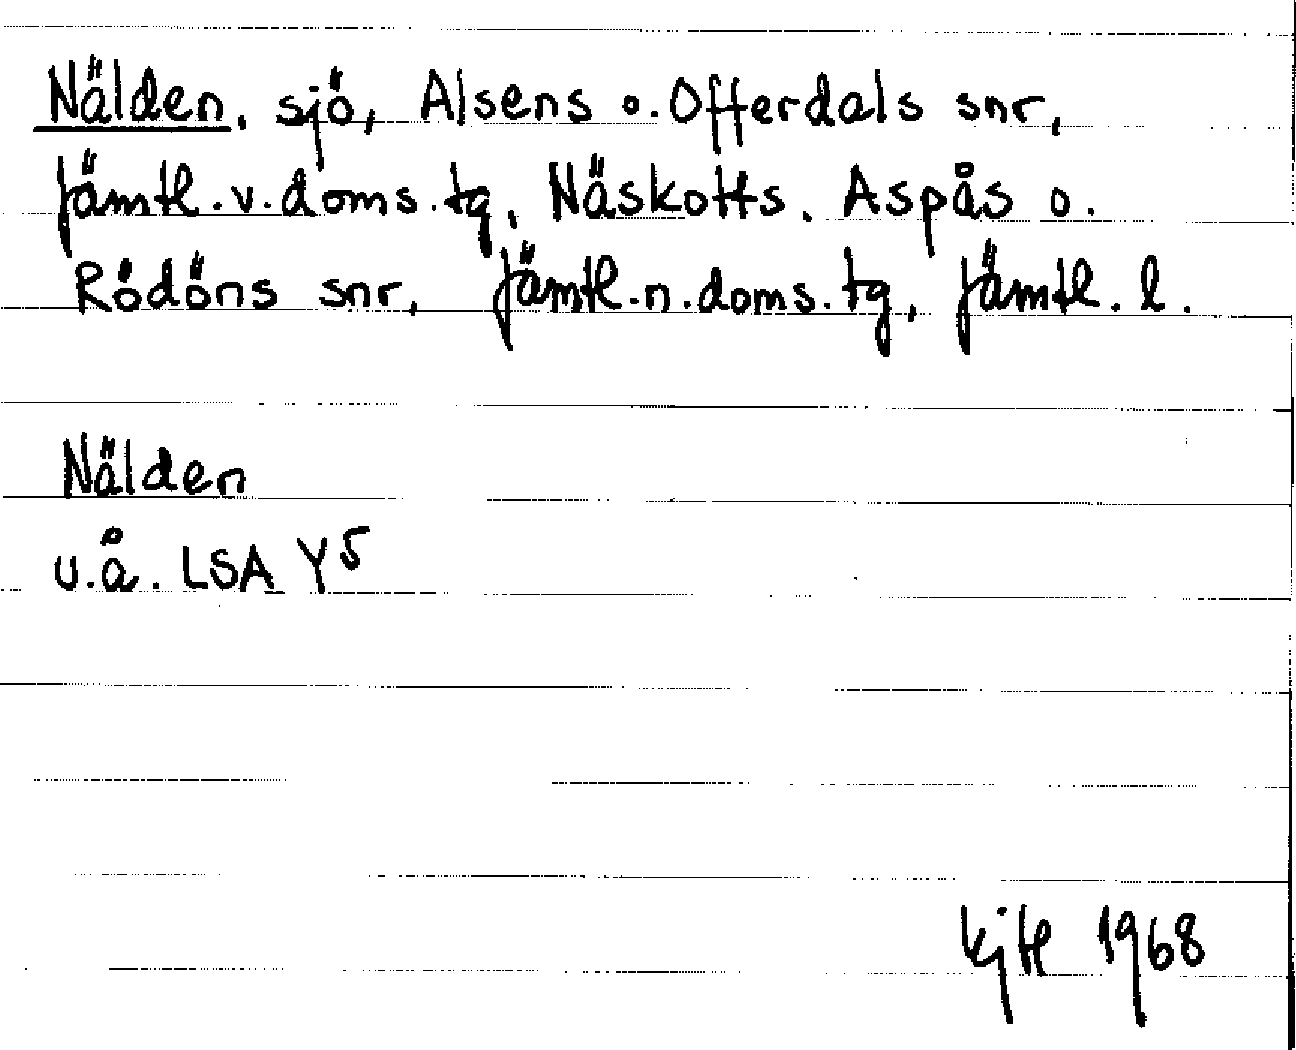 Nälden, sjö, Alsens o. Offerdals snr,
Jämtl.v.doms.tg, Näskotts, Aspås o.
Rödöns snr, Jämtl.n.doms.tg, Jämtl. l.
Nälden
u.å. LSA Y5
1968